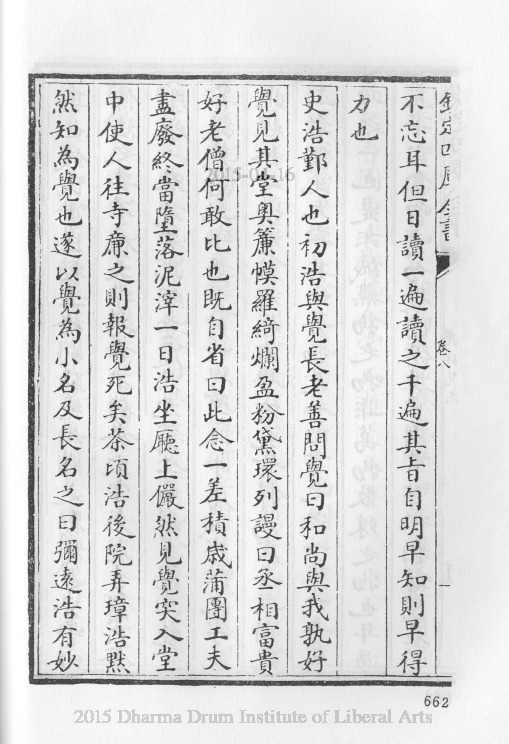 欽定四庫全書
卷八
不忘耳但日讀一遍讀之千遍其旨自明早知則早得
力也
史浩鄞人也初浩與覺長老善問覺曰和尚與我孰好
覺見其堂奥簾幙羅綺爛盈粉黛環列謾曰丞相富貴
好老僧何敢比也既自省曰此念一差積歳蒲團工夫
盡廢終當墮落泥滓一日浩坐廳上儼然見覺突入堂
中使人往寺亷之則報覺死矣茶頃浩後院弄璋浩黙
然知為覺也遂以覺為小名及長名之曰彌逺浩有妙
2015-01-16
662
2015 Dharma Drum Institute of Liberal Arts